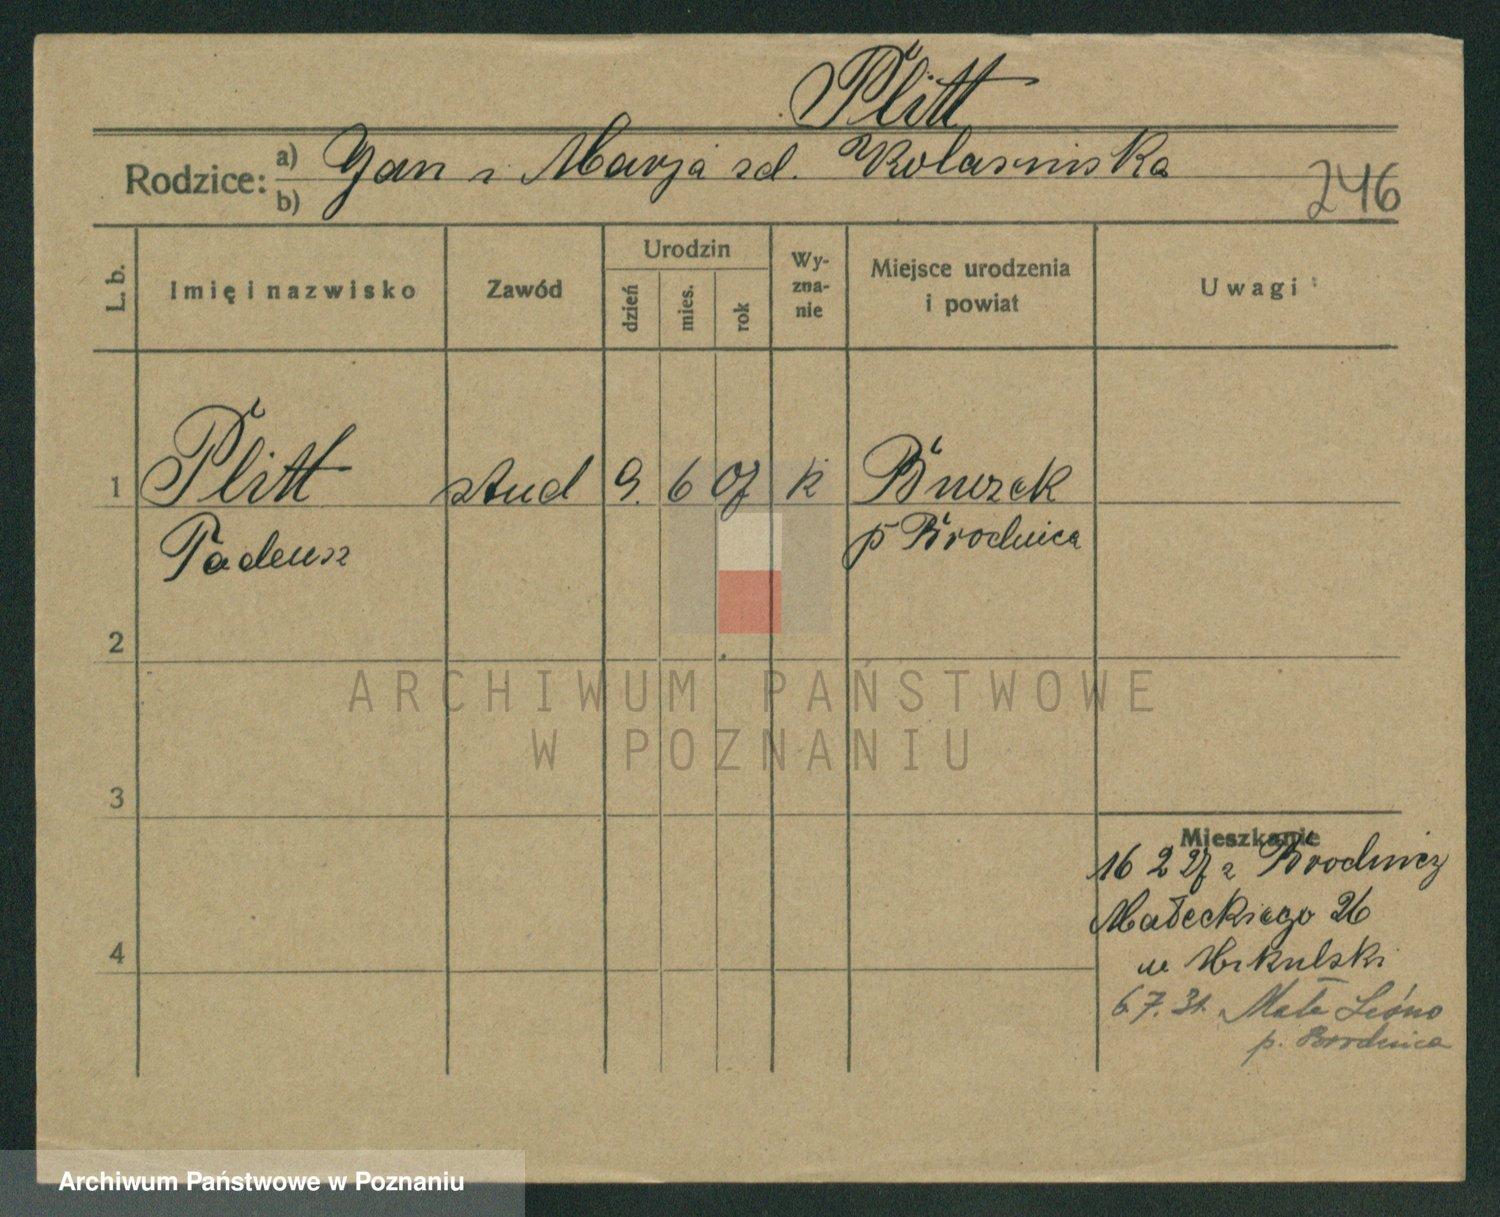 Plitt
Rodzice: a) Jan i Marja zd. Kolasinska
b)
246
L. b.
Imię i nazwisko
Zawód
Urodzin
dzień
mies.
rok
Wy-
zna-
nie
Miejsce urodzenia
i powiat
Uwagi
1 Plitt stud 9. 6 07 k Bruzek
Tadeusz p Brodnica
2
3
4
ARCHIWUM PAŃSTWOWE
W POZNANIU
Mieszkanie
16 2 27 z Brodnicy
Małeckiego 26
w
6.7.31. Małe Leśno
p. Brodnica
Archiwum Państwowe w Poznaniu